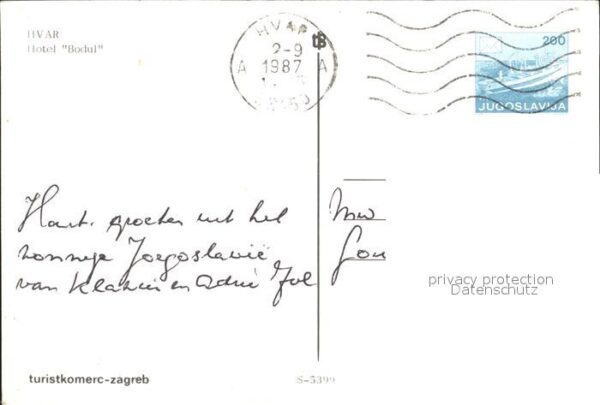 HVAR
Hotel "Bodul"
HVAR
2-9
1987
A A
200
JUGOSLAVIJA
Hart. groeten uit het
zonnige Joegoslavië
van en
privacy protection
Datenschutz
turistkomerc-zagreb
S-5399